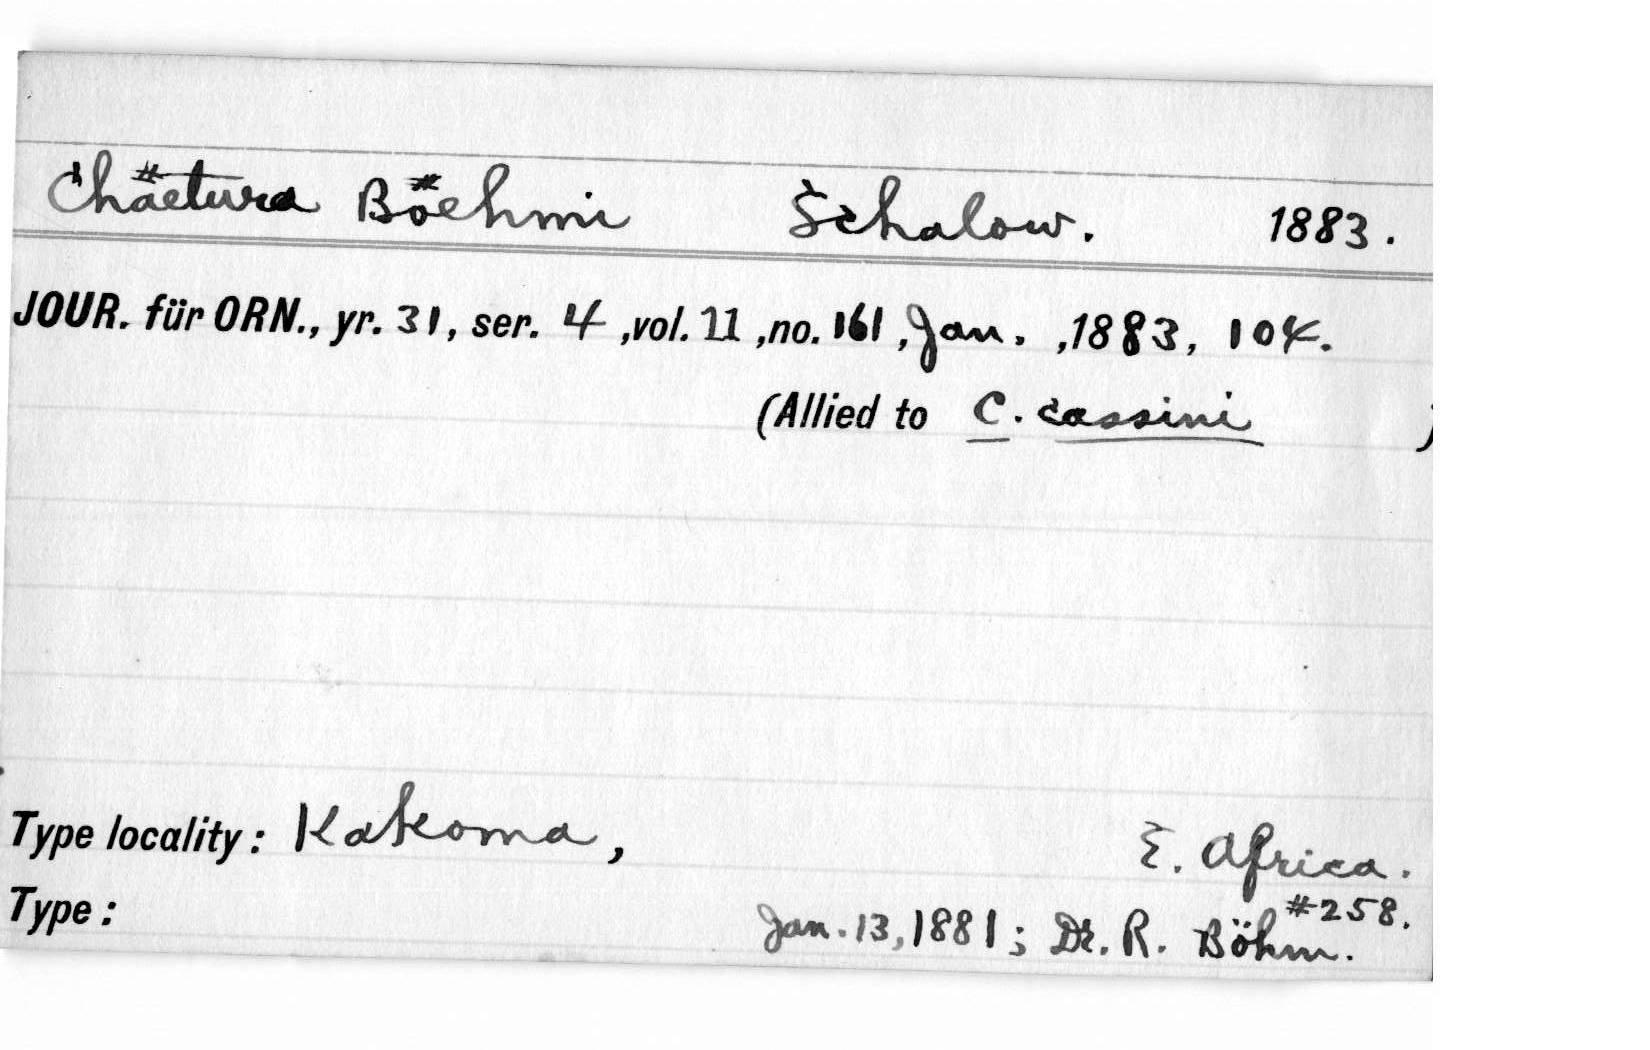 Chäetura Böehmi Schalow. 1883.
JOUR. für ORN., yr. 31, ser. 4, vol. 11, no. 161, Jan., 1883, 104.
(Allied to C. cassini )
Type locality: Kakoma, E. Africa.
#258.
Type: Jan. 13, 1881; Dr. R. Böhm.